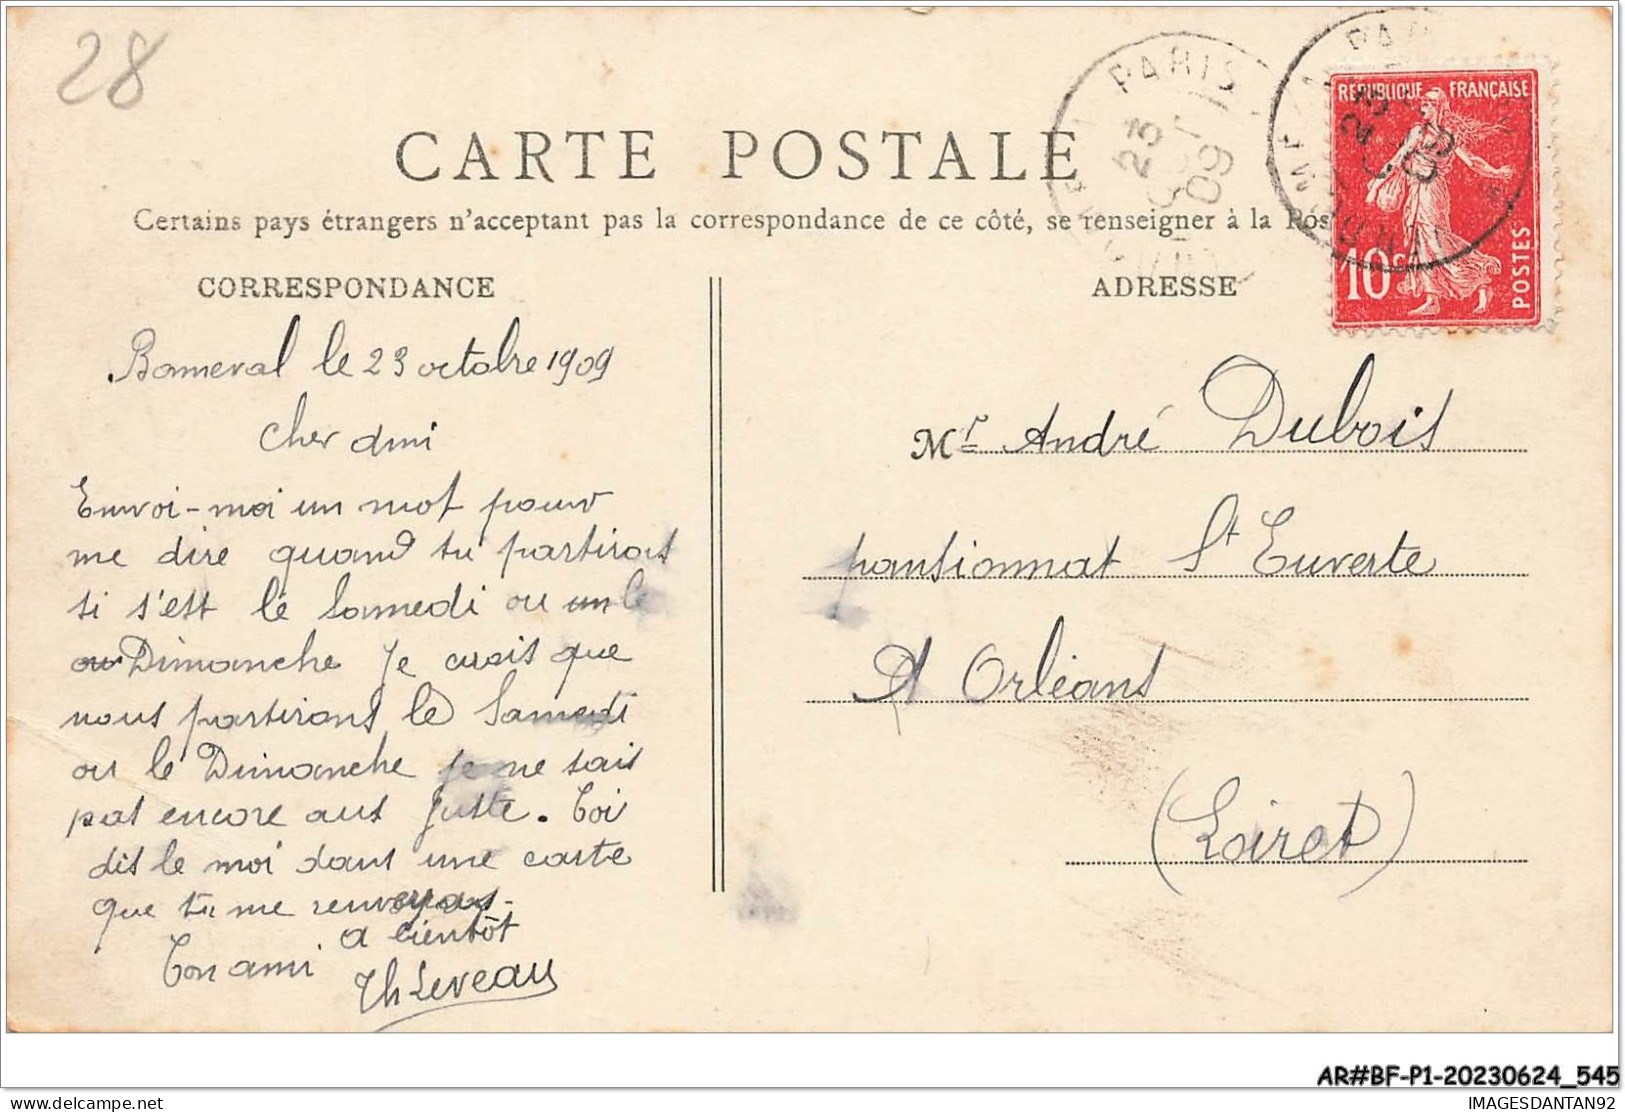 28
CARTE POSTALE
Certains pays étrangers n'acceptant pas la correspondance de ce côté, se renseigner à la Pos
CORRESPONDANCE
Bameval le 23 octobre 1909
Cher Ami
Envoi-moi un mot pour
me dire quand tu partirat
si s'est le Samedi ou un le
ou Dimanche Je crois que
nous partirons le Samedi
ou le Dimanche je ne sais
pas encore aus juste. Toi
dis le moi dans une carte
que tu me renveras-
a bientôt
Ton ami
Th Leveau
ADRESSE
PARIS
23
09
REPUBLIQUE FRANÇAISE
10c
POSTES
Mr André Dubois
pansionnat St Euverte
A Orléans
(Loiret)
AR#BF-P1-20230624_545
delcampe.net
IMAGESDANTAN92